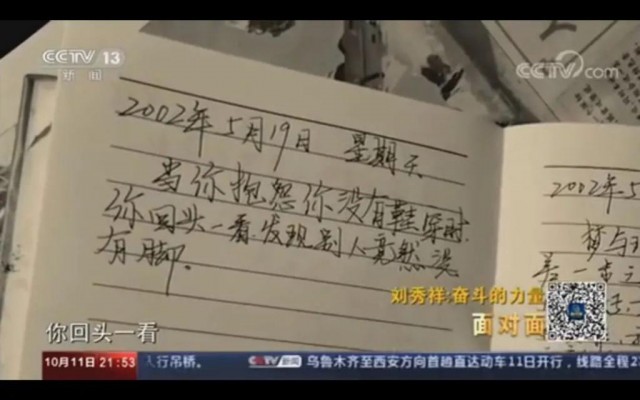 CCTV 13
新闻
CCTV.com
2002年5月19日 星期天
当你抱怨你没有鞋穿时,
你回头一看,发现别人竟然没
有脚.
2002年5
梦与
刘秀祥:奋斗的力量
面对面
你回头一看
10月11日 21:53
人行吊桥。
CCTV 新闻
乌鲁木齐至西安方向首趟直达动车11日开行，线路全程2